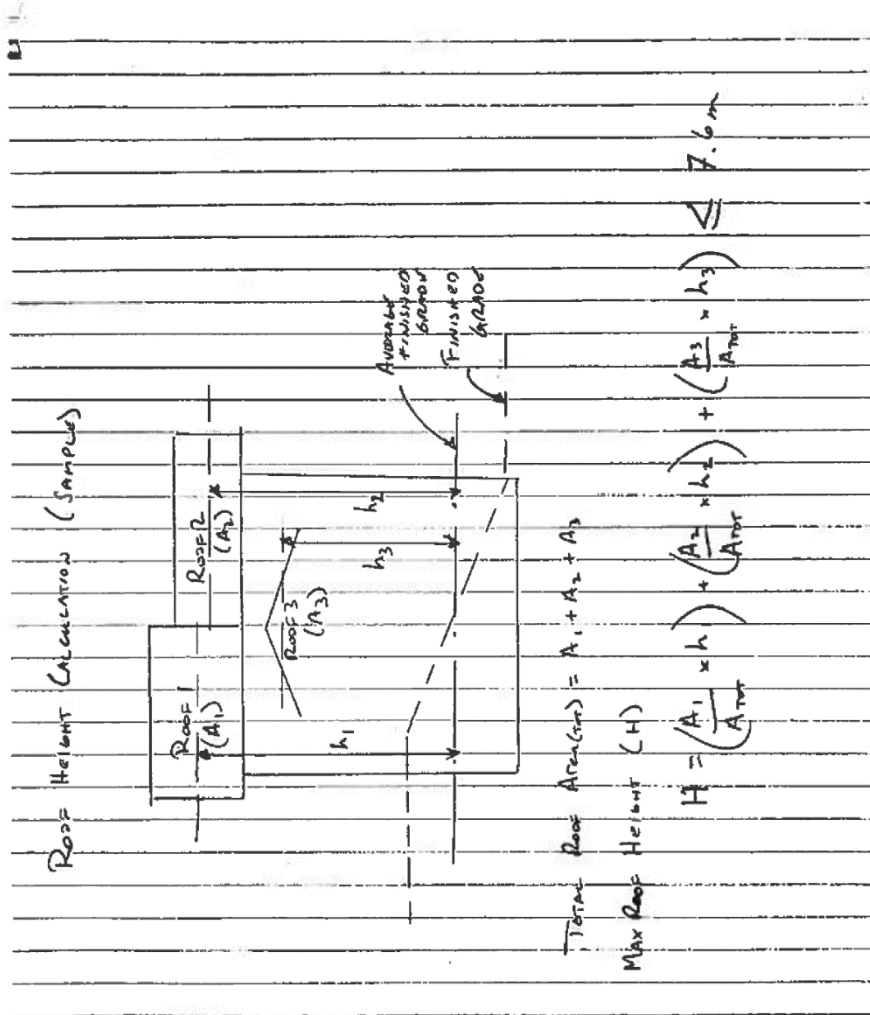 ROOF HEIGHT CALCULATION (SAMPLE)
ROOF 1
(A1)
ROOF 2
(A2)
ROOF 3
(A3)
h1
h3
h2
AVERAGE
FINISHED
GRADE
FINISHED
GRADE
TOTAL ROOF AREA(TOT) = A1 + A2 + A3
MAX ROOF HEIGHT (H)
H = (A1/ATOT × h1) + (A2/ATOT × h2) + (A3/ATOT × h3) ≤ 7.6m